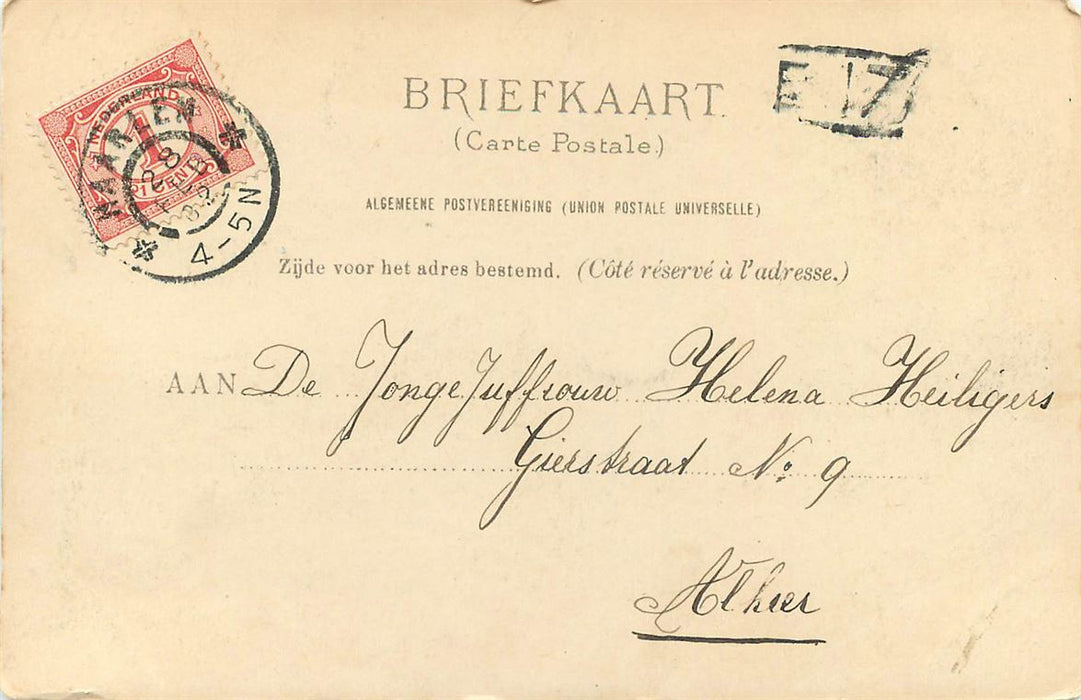 BRIEFKAART.
(Carte Postale.)
ALGEMEENE POSTVEREENIGING (UNION POSTALE UNIVERSELLE)
Zijde voor het adres bestemd. (Côté réservé à l'adresse.)
AAN De JongeJuffrouw Helena Heiligers
Gierstraat No: 9
Alhier
NEDERLAND
1
1 CENT
HAARLEM
28
FEB
4-5N
17